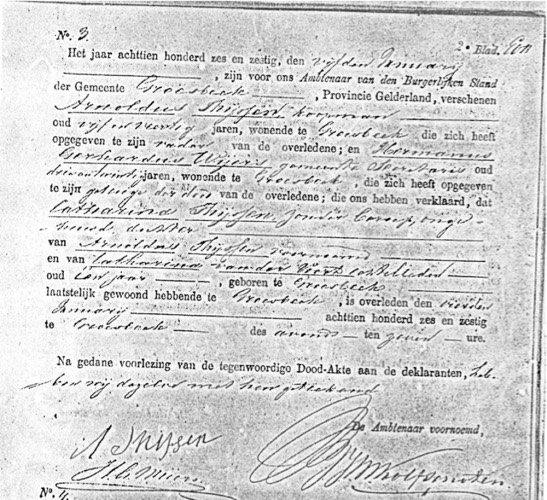 No. 3. 2e Blad.
Het jaar achttien honderd zes en zestig, den vijfden Januarij
, zijn voor ons Ambtenaar van den Burgerlijken Stand
der Gemeente Groesbeek, Provincie Gelderland, verschenen
Arnoldus Thijssen koopman
oud vijf en veertig jaren, wonende te Groesbeek die zich heeft
opgegeven te zijn vader van de overledene; en Hermanus
Gerhardus gemeente Secretaris oud
jaren, wonende te Groesbeek, die zich heeft opgegeven
te zijn getuige van de overledene; die ons hebben verklaard, dat
Catharina Thijssen zonder beroep, onge-
huwd, dochter
van Arnoldus Thijssen voornoemd
en van Catharina van der
oud een jaar, geboren te Groesbeek
laatstelijk gewoond hebbende te Groesbeek, is overleden den vierden
Januarij achttien honderd zes en zestig
te Groesbeek des avonds ten zeven ure.
Na gedane voorlezing van de tegenwoordige Dood-Akte aan de deklaranten, heb-
ben wij dezelve met hen geteekend
De Ambtenaar voornoemd,
A Thijssen
No.